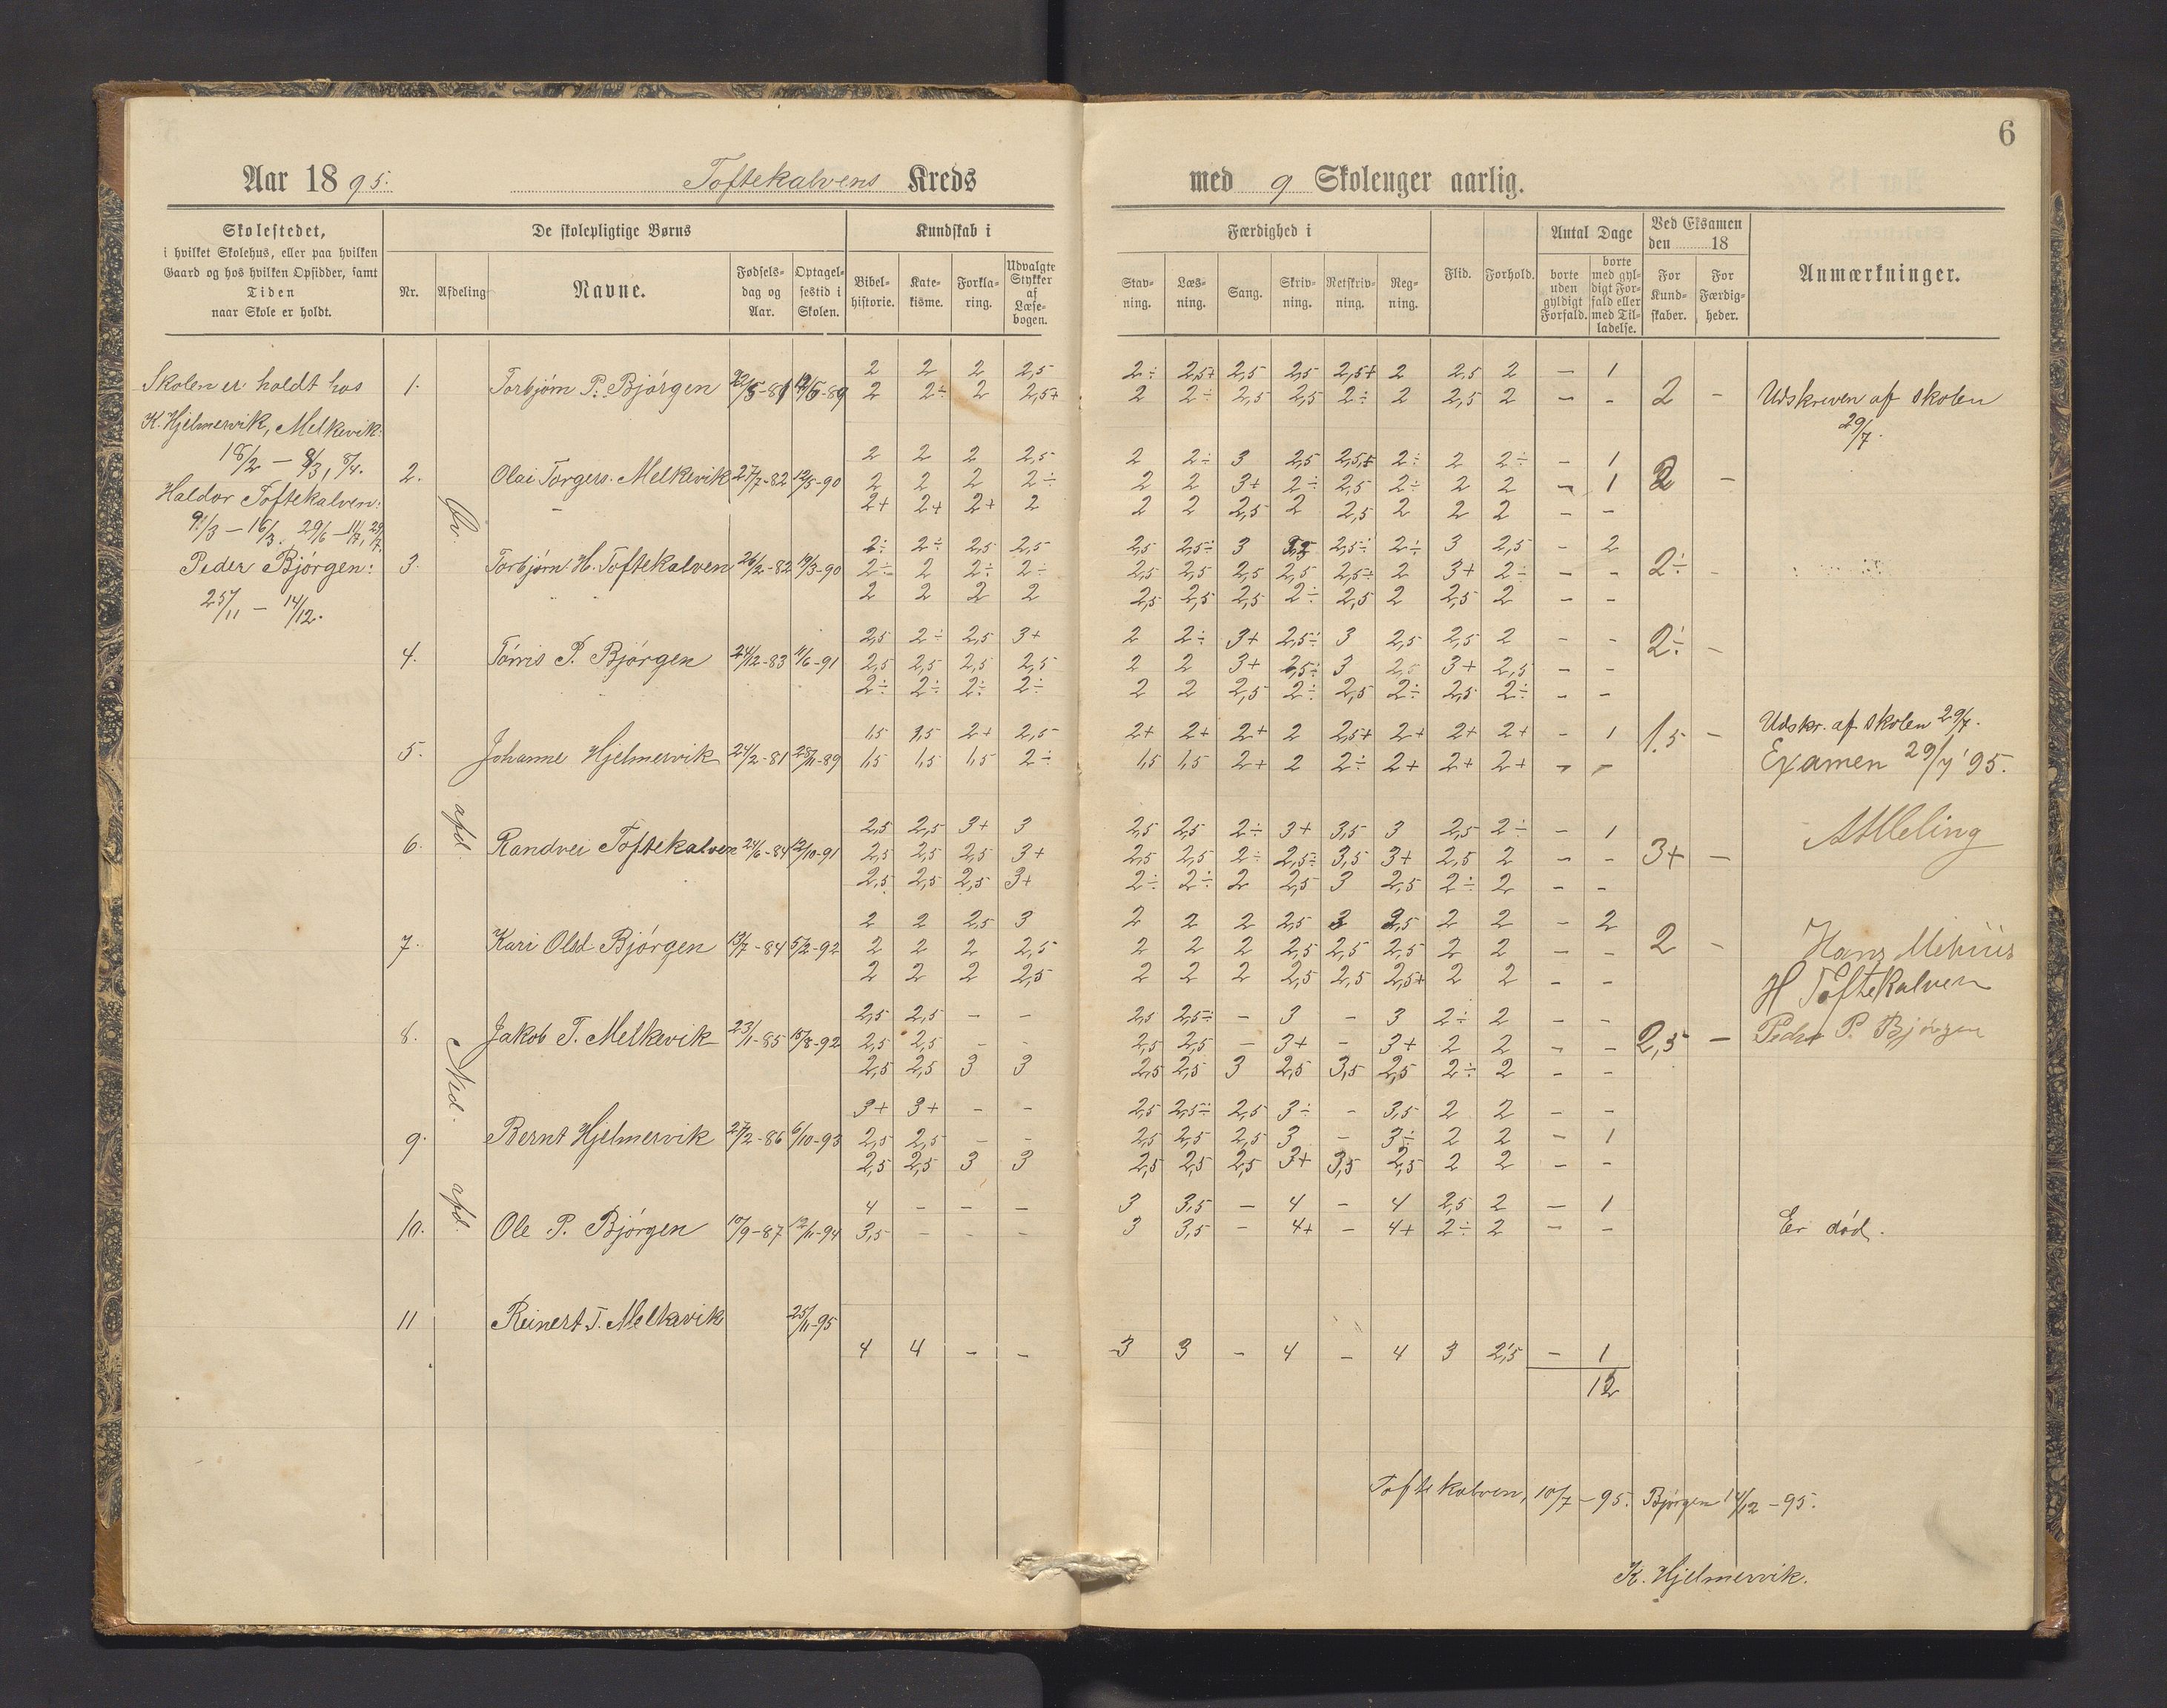 6
Aar 1895. Toftekalvens Kreds med 9 Skoleuger aarlig.
Skolestedet, i hvilket Skolehus, eller paa hvilken Gaard og hos hvilken Opsidder, samt Tiden naar Skole er holdt.
De skolepligtige Børns
Nr. Afdeling Navne. Fødselsdag og Aar. Optagelsestid i Skolen.
Kundskab i
Bibelhistorie. Katekisme. Forklaring. Udvalgte Stykker af Læsebogen.
Færdighed i
Stavning. Læsning. Sang. Skrivning. Retskrivning. Regning.
Flid. Forhold.
Antal Dage
borte uden gyldigt Forfald. borte med gyldigt Forfald eller med Tilladelse.
Ved Eksamen den 18
For Kundskaber. For Færdigheder.
Anmærkninger.
Skolen er holdt hos
K. Hjelmervik, Melkevik:
18/2 – 8/3, 8/4.
Haldor Toftekalven:
9/3 – 16/3. 29/6 – 11/7, 29/7.
Peder Bjørgen:
25/11 – 14/12.
Øv. afd.
Ned. afd.
2 2 2 2,5 2÷ 2,5+ 2,5 2,5 2,5+ 2 2,5 2 – 1
1. Torbjørn P. Bjørgen 22/5-81 12/5-89 2 2÷ 2 2,5+ 2 2÷ 2,5 2,5 2÷ 2 2,5 2 – – 2 – Udskreven af skolen
29/7.
2 2 2 2,5 2 2÷ 3 2,5 2,5+ 2÷ 2 2÷ – 1
2. Olai Torgers. Melkevik 27/7-82 12/5-90 2 2 2 2÷ 2 2 3+ 2÷ 2,5 2÷ 2 2 – 1 2 –
2+ 2+ 2+ 2 2 2 2,5 2 2,5 2 2 2 – –
2÷ 2÷ 2,5 2,5 2,5 2,5÷ 3 3,5 2,5÷ 2÷ 3 2,5 – 2
3. Torbjørn H. Toftekalven 26/2-82 19/3-90 2÷ 2 2÷ 2÷ 2,5 2,5 2,5 2,5 2,5÷ 2 3+ 2÷ – – 2÷ –
2 2 2 2 2,5 2,5 2,5 2÷ 2,5 2 2,5 2 – –
2,5 2÷ 2,5 3+ 2 2÷ 3+ 2,5÷ 3 2,5 2,5 2 – –
4. Tørris P. Bjørgen 24/12-83 11/6-91 2,5 2,5 2,5 2,5 2 2 3+ 2,5÷ 3 2,5 3+ 2,5 – – 2÷ –
2÷ 2÷ 2÷ 2÷ 2 2 2,5 2÷ 2,5 2÷ 2,5 2÷ – –
1,5 1,5 2+ 2,5 2+ 2+ 2+ 2 2,5+ 2+ 2+ 2+ – 1 1.5 – Udskr. af skolen 29/7.
5. Johanne Hjelmervik 24/2-81 28/11-89 1,5 1,5 1,5 2÷ 1,5 1,5 2+ 2 2÷ 2+ 2+ 2+ – – Examen 29/7 '95.
2,5 2,5 3+ 3 2,5 2,5 2÷ 3+ 3,5 3 2,5 2÷ – 1
6. Randvei Toftekalven 24/6-84 12/10-91 2,5 2,5 2,5 3+ 2,5 2,5 2÷ 2,5÷ 3,5 3+ 2,5 2 – – 3+ –
2,5 2,5 2,5 3+ 2÷ 2÷ 2 2,5 3 2,5 2÷ 2 – –
2 2 2,5 3 2 2 2 2,5 3 2,5 2 2 – 2
7. Kari Olsd. Bjørgen 13/7-84 5/2-92 2 2 2 2,5 2 2 2 2,5 2,5 2,5 2 2 – – 2 – Hans
2 2 2 2,5 2 2 2 2,5 2,5 2,5+ 2 2 – – H Toftekalven
2,5 2,5 – – 2,5 2,5÷ – 3 – 3 2÷ 2 – –
8. Jakob T. Melkevik 23/1-85 15/8-92 2,5 2,5 – – 2,5 2,5 – 3+ – 3+ 2 2 – – 2,5 – Peder P. Bjørgen
2,5 2,5 3 3 2,5 2,5 3 2,5 3,5 2,5 2÷ 2 – –
3+ 3+ – – 2,5 2,5÷ 2,5 3÷ – 3,5 2 2 – –
9. Bernt Hjelmervik 27/2-86 6/10-93 2,5 2,5 – – 2,5 2,5 2,5 3 – 3÷ 2 2 – 1
2,5 2,5 3 3 2,5 2,5 2,5 3+ 3,5 2,5 2 2 – –
4 – – – 3 3,5 – 4 – 4 2,5 2 – 1
10. Ole P. Bjørgen 10/9-87 12/11-94 3,5 – – – 3 3,5 – 4+ – 4+ 2÷ 2 – – Er død.
11 Reinert T. Melkevik 25/11-95
4 4 – – 3 3 – 4 – 4 3 2,5 – 1
12
Toftekalven, 10/7 – 95. Bjørgen 14/12 – 95.
K. Hjelmervik.